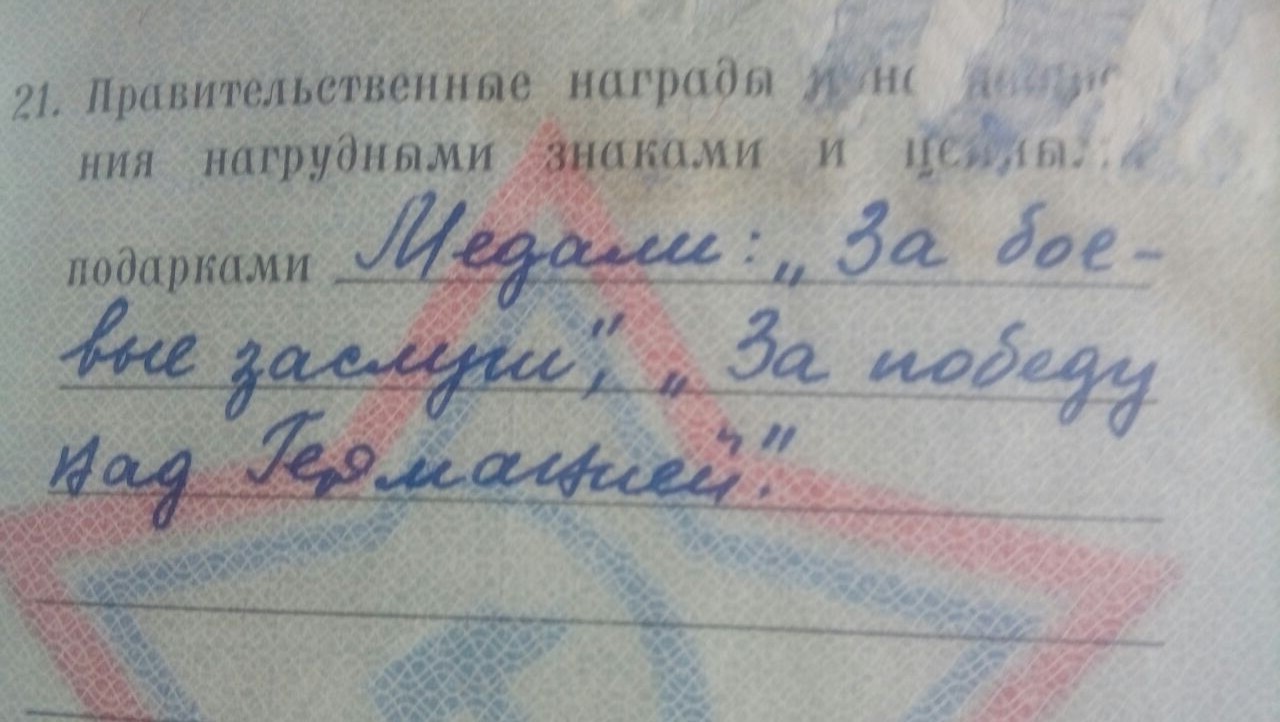 21. Правительственные награды и
ния нагрудными знаками и ценными
подарками Медали: „За бое-
вые заслуги", „За победу
над Германией".